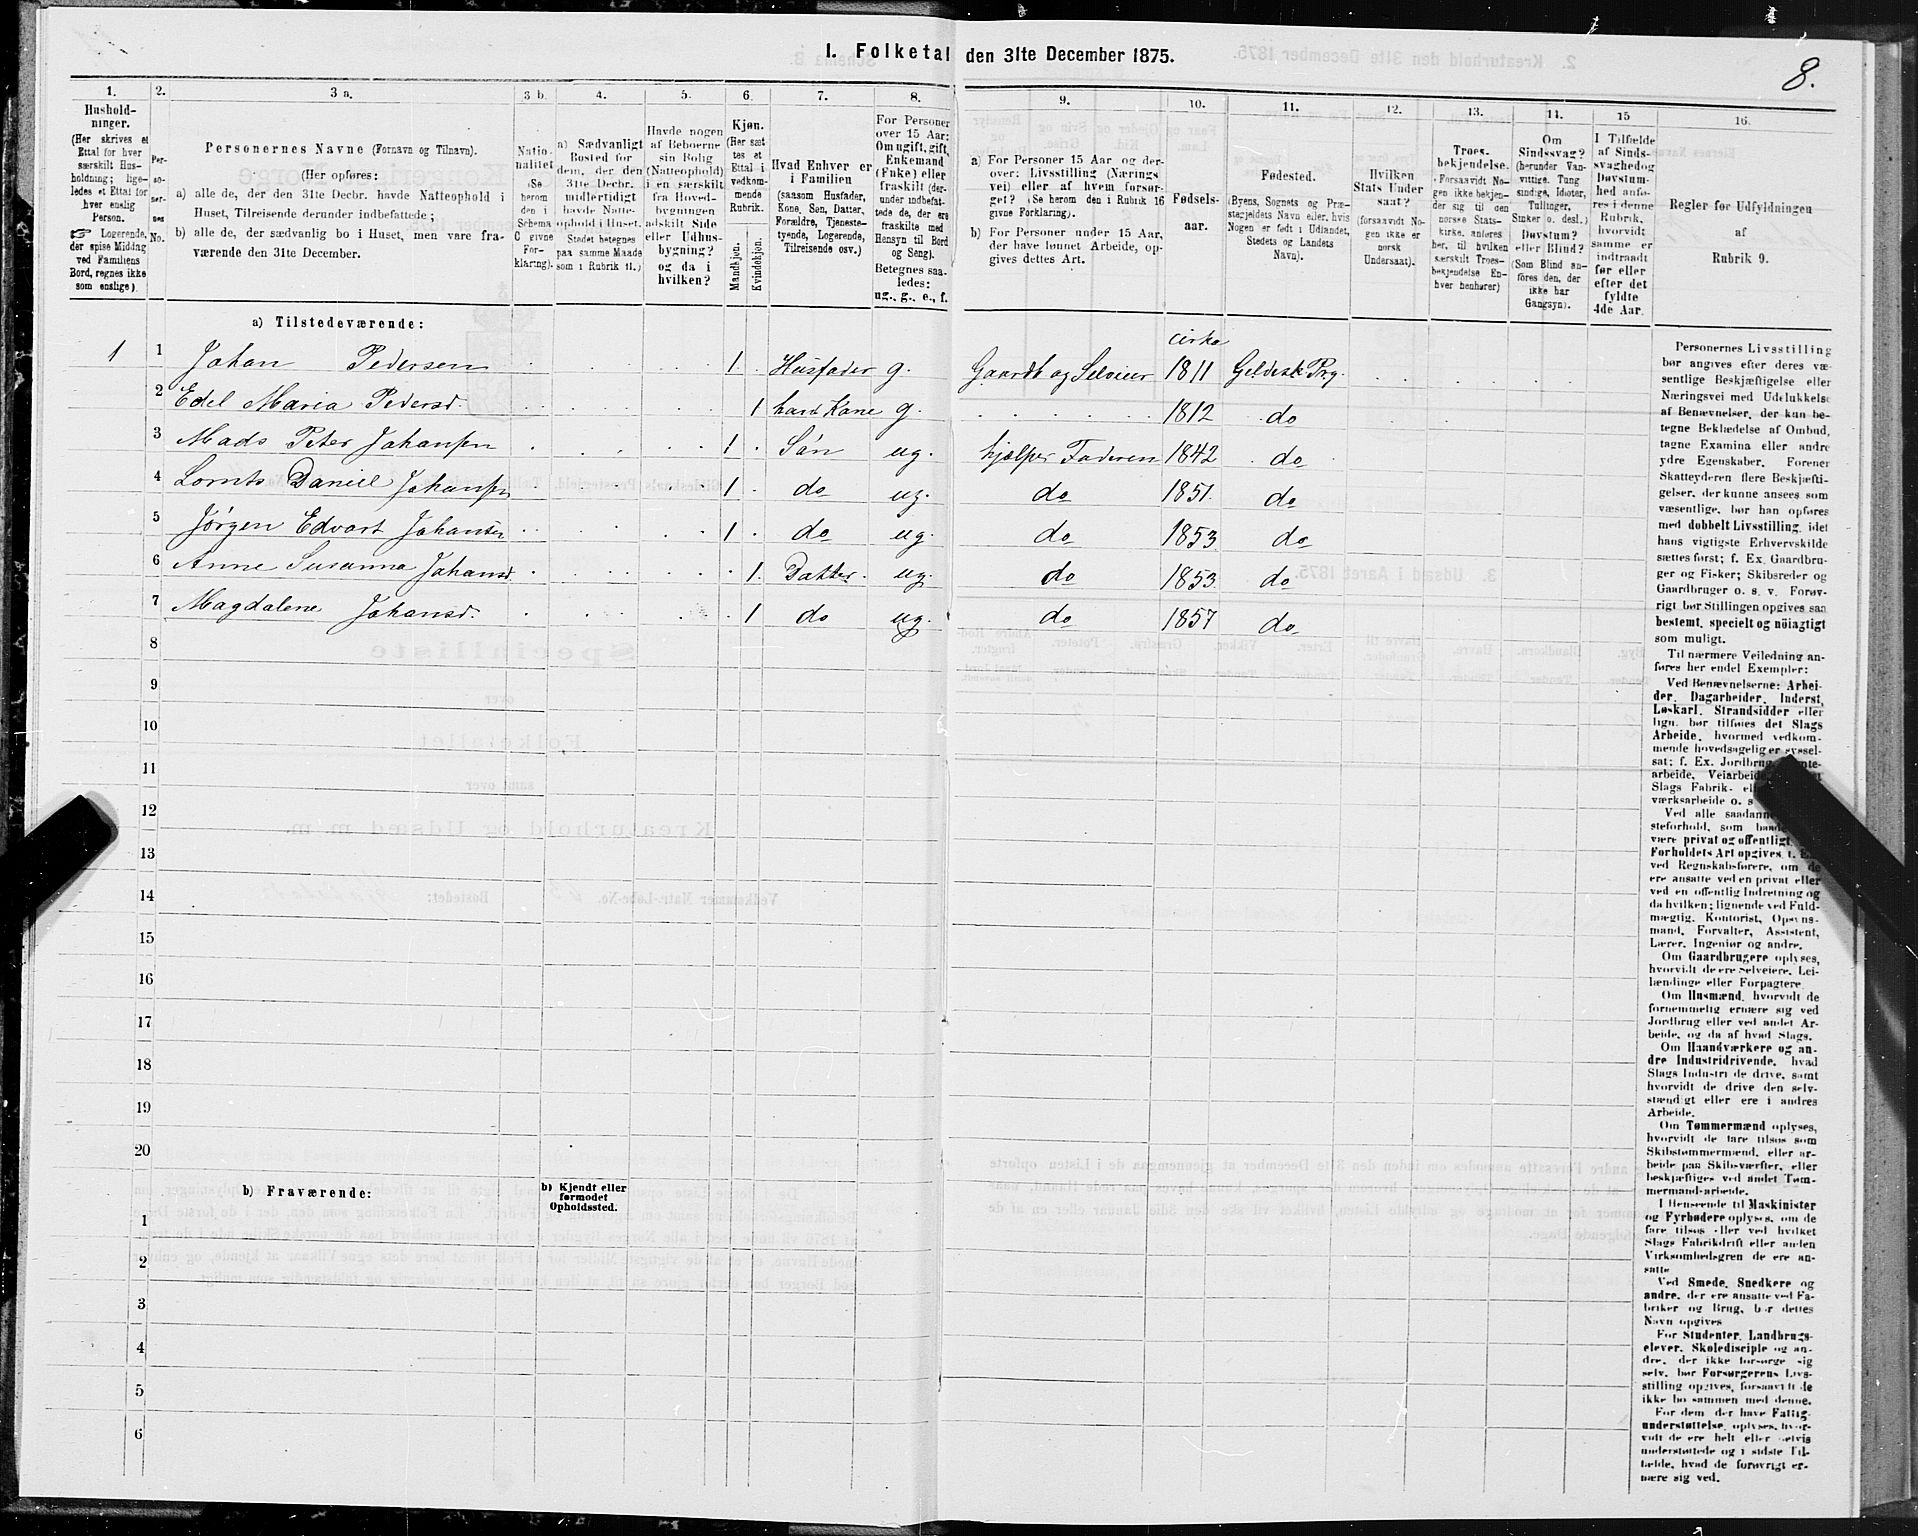 I. Folketal den 31te December 1875.
8.
1. 2. 3 a. 3 b. 4. 5. 6. 7. 8. 9. 10. 11. 12. 13. 14. 15 16.
Hushold-
ninger.
(Her skrives et
Ettal for hver
særskilt Hus-
holdning; lige-
ledes et Ettal for
hver enslig
Person.
☞ Logerende,
der spise Middag
ved Familiens
Bord, regnes ikke
som enslige).
Per-
so-
ner-
nes
No.
Personernes Navne (Fornavn og Tilnavn).
(Her opføres:
a) alle de, der den 31te Decbr. havde Natteophold i
Huset, Tilreisende derunder indbefattede;
b) alle de, der sædvanlig bo i Huset, men vare fra-
værende den 31te December.
Natio-
nalitet
(Se
herom
den i
Schema
C givne
For-
klaring).
a) Sædvanligt
Bosted for
dem, der den
31te Decbr.
midlertidigt
havde Natte-
ophold i Huset.
Stedet betegnes
paa samme Maade
som i Rubrik 11.)
Havde nogen
af Beboerne
sin Bolig
(Natteophold)
i en særskilt
fra Hoved-
bygningen
adskilt Side
eller Udhus-
bygning?
og da i
hvilken?
Kjøn.
(Her sæt
tes et
Ettal i
vedkom-
mende
Rubrik.
Mandkjøn.
Kvindekjøn.
Hvad Enhver er
i Familien
(saasom Husfader,
Kone, Søn, Datter,
Forældre, Tjeneste-
tyende, Logerende,
Tilreisende osv.)
For Personer
over 15 Aar:
Om ugift, gift,
Enkemand
(Enke) eller
fraskilt (der-
under indbefat-
tede de, der ere
fraskilte med
Hensyn til Bord
og Seng).
Betegnes saa-
ledes:
ug., g., e., f.
a) For Personer 15 Aar og der-
over: Livsstilling (Nærings
vei) eller af hvem forsør-
get? (Se herom den i Rubrik 16
givne Forklaring).
b) For Personer under 15 Aar,
der have lønnet Arbeide, op-
gives dettes Art.
Fødsels-
aar.
Fødested.
(Byens, Sognets og Præ-
stegjeldets Navn eller, hvis
Nogen er født i Udlandet,
Stedets og Landets
Navn).
Hvilken
Stats Under
saat?
(forsaavidt No-
gen ikke er
norsk
Undersaat).
Troes-
bekjendelse.
(Forsaavidt No-
gen ikke bekjen-
der sig til den
norske Stats-
kirke, anføres
her, til hvilken
særskilt Troes-
bekjendelse En-
hver henhører)
Om
Sindssvag?
(herunder Van-
vittige, Tung
sindige, Idioter,
Tullinger,
Sinker o. desl.)
Døvstum?
eller Blind?
(Som Blind an-
føres den, der
ikke har
Gangsyn).
I Tilfælde
af Sinds-
svaghed og
Døvstum-
hed anfø-
res i denne
Rubrik,
hvorvidt
samme er
indtraadt
før eller
efter det
fyldte
4de Aar.
Regler før Udfyldningen
af
Rubrik 9.
a) Tilstedeværende:
cirka
1 1 Johan Pedersen 1 Husfader g. Gaardb og Selveier 1811 Geldesk Prg.
2 Edel Maria Pedersd. 1 hans Kone g. 1812 do
3 Mads Peter Johansen 1 Søn ug. hjælper Faderen 1842 do
4 Lornts Daniel Johansen 1 do ug. do 1851. do
5 Jørgen Edvart Johansen 1 do ug. do 1853 do
6 Anne Susanna Johansd. 1 Datter ug. do 1853 do
7 Magdalene Johansd. 1 do ug. do 1857 do
8
9
10
11
12
13
14
15
16
17
18
19
20
b) Fraværende: b) Kjendt eller
formodet
Opholdssted.
1
2
3
4
5
6
Personernes Livsstilling
bør angives efter deres væ-
sentlige Beskjæftigelse eller
Næringsvei med Udelukkelse
af Benævnelser, der kun be-
tegne Beklædelse af Ombud,
tagne Examina eller andre
ydre Egenskaber. Forener
Skatteyderen flere Beskjæfti-
gelser, der kunne ansees som
væsentlige, bør han opføres
med dobbelt Livsstilling, idet
hans vigtigste Erhvervskilde
sættes først; f. Ex. Gaardbru-
ger og Fisker; Skibsreder og
Gaardbruger o. s. v. Forøv-
rigt bør Stillingen opgives saa
bestemt, specielt og nöiagtigt
som muligt.
Til nærmere Veiledning an-
føres her endel Exempler:
Ved Benævnelserne: Arbei-
der, Dagarbeider, Inderst,
Løskarl, Strandsidder eller
lign. bør tilføies det Slags
Arbeide, hvormed vedkom-
mende hovedsagelig er syssel-
sat; f. Ex. Jordbrug,
arbeide, Veiarbeide,
Slags Fabrik-
værksarbeide o. s
Ved alle saadanne
steforhold, som
være privat og offentligt,
Forholdets Art opgives, f. Ex.
ved Regnskabsførere, om de
ere ansatte ved en privat eller
ved en offentlig Indretning og
da hvilken; lignende ved Fuld-
mægtig, Kontorist, Opsyns-
mand, Forvalter, Assistent,
Lærer, Ingeniør og andre.
Om Gaardbrugere oplyses,
hvorvidt de ere Selveiere, Lei-
lændinge eller Forpagtere.
Om Husmænd, hvorvidt de
fornemmelig ernære sig ved
Jordbrug eller ved andet Ar-
beide, og da af hvad Slags.
Om Haandværkere og an-
dre Industridrivende, hvad
Slags Industri de drive, samt
hvorvidt de drive den selv-
stændigt eller ere i andres
Arbeide.
Om Tømmermænd oplyses,
hvorvidt de fare tilsøs som
Skibstømmermænd, eller ar-
beide paa Skibsværfter, eller
beskjæftiges ved andet Tøm-
mermandsarbeide.
I Henseende til Maskinister
og Fyrbødere oplyses, om de
fare tilsøs eller ved hvilket
Slags Fabrikdrift eller anden
Virksomhedsgren de ere an-
satte
Ved Smede, Snedkere og
andre, der ere ansatte ved Fa-
briker og Brug, bør dettes
Navn opgives
For Studenter, Landbrugs-
elever, Skoledisciple og an-
dre, der ikke forsørge sig
selv, bør Forsørgerens Livs-
stilling opgives, forsaavidt de
ikke bo sammen med denne.
For dem, der have Fattig-
understøttelse, oplyses, hvor-
vidt de ere helt eller delvis
understøttede og i sidste Til-
fælde, hvad de forøvrigt er-
nære sig ved.